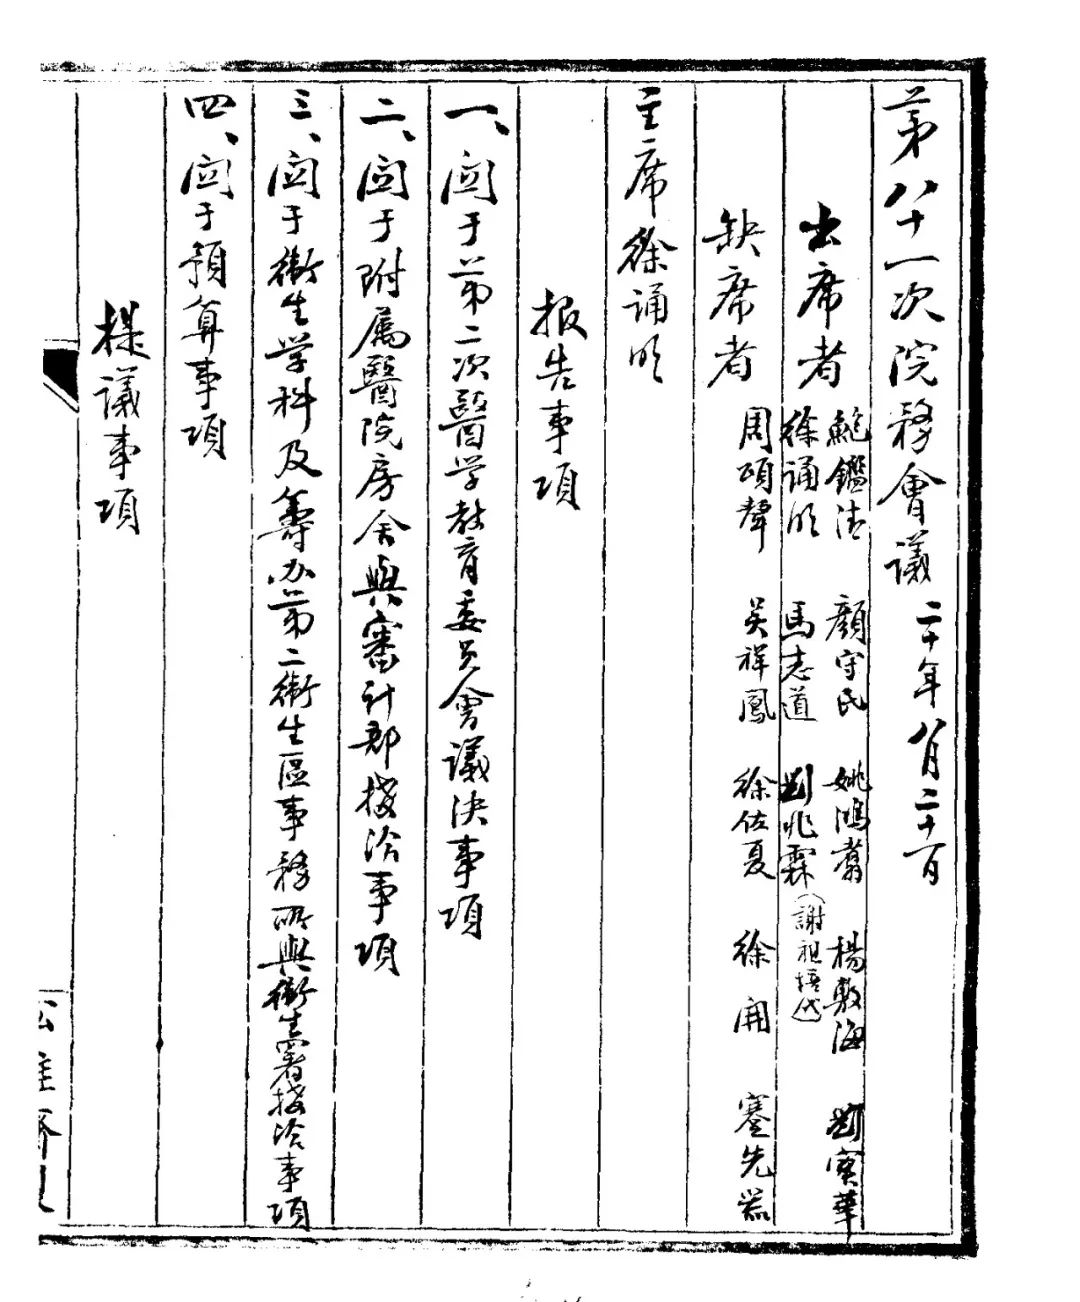 第八十一次院務會議 二十年八月二十日
出席者 鮑鑑清 顏守民 姚鴻翥 楊敷海 劉寶華
徐誦明 馬志道 劉兆霖(謝祖培代)
缺席者 周頌聲 吳祥鳳 徐佐夏 徐 開 蹇先器
主席徐誦明
报告事項
一、関于第二次醫学教育委员會議決事項
二、関于附属醫院房舍與審計部接洽事項
三、関于衛生学科及籌办第二衛生區事務所與衛生署接洽事項
四、関于預算事項
提議事項